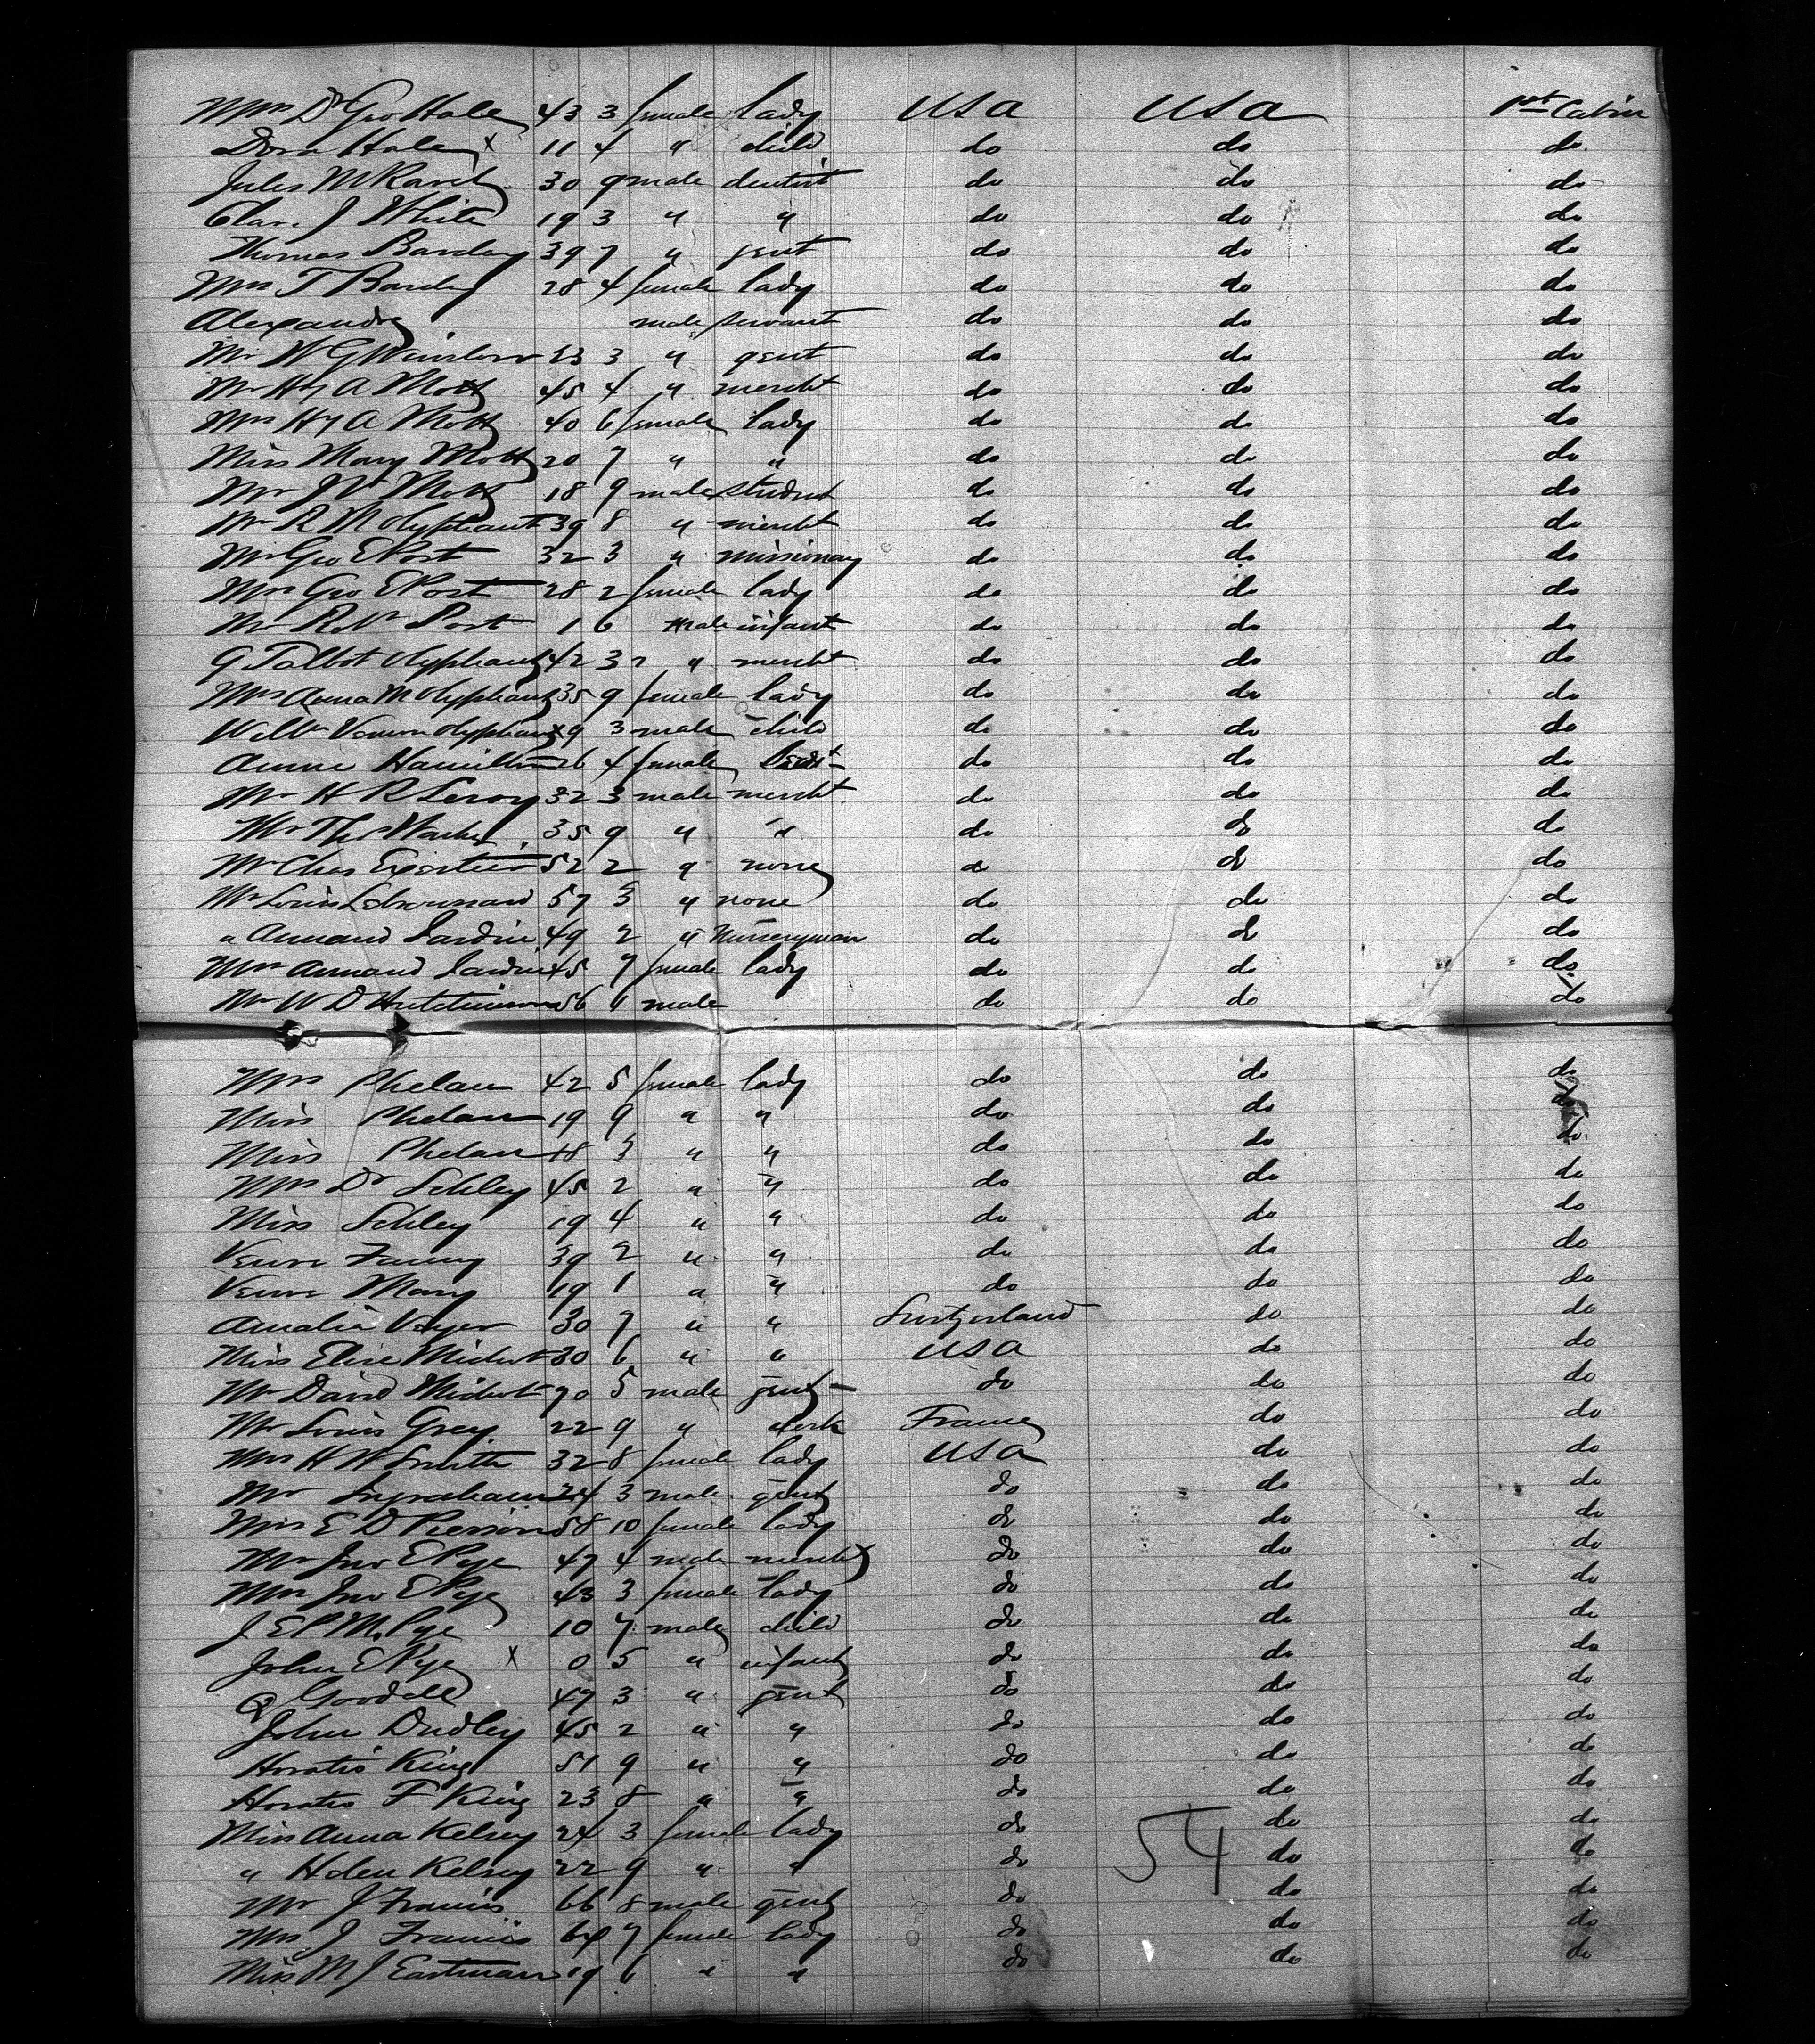 Mrs Dr Geo Hale 43 3 female lady USA USA 1st Cabin
Dora Hale x 11 4 " child do do do
Jules M 30 9 male dentist do do do
Clar. J White 19 3 " " do do do
Thomas Barclay 39 7 " gent do do do
Mrs T Barclay 28 4 female lady do do do
Alexandre male servant do do do
Mr W G Winslow 23 3 " gent do do do
Mr Hy A Mott 45 4 " mercht do do do
Mrs Hy A Mott 40 6 female lady do do do
Miss Mary Mott 20 7 " " do do do
Mr Mott 18 9 male student do do do
Mr R M Olyphant 39 8 " mercht do do do
Mr Geo E Post 32 3 " missionary do do do
Mrs Geo E Post 28 2 female lady do do do
Mr Post 1 6 male infant do do do
G Talbot Olyphant 42 3 " mercht do do do
Mrs Anna M Olyphant 35 9 female lady do do do
Vernon Olyphant x 9 3 male child do do do
Annie Hamilton 26 4 female do do do
Mr H R Leroy 32 3 male mercht do do do
Mr 35 9 " " do do do
Mr Chas 52 2 " none do do do
Mr Louis 57 3 " none do do do
" Armand Jardin 49 2 " Nurseryman do do do
Mrs Armand Jardin 45 7 female lady do do do
Mr W D Hutchinson 56 male do do do
Mrs Phelan 42 5 female lady do do do
Miss Phelan 19 9 " " do do do
Miss Phelan 18 3 " " do do do
Mrs Dr Schley 45 2 " " do do do
Miss Schley 19 4 " " do do do
Fanny 39 2 " " do do do
Mary 19 1 " " do do do
Amalia 30 7 " " Switzerland do do
Miss Elise 30 6 " " USA do do
Mr David 70 5 male gent do do do
Mr Louis Grey 22 9 " clerk France do do
Mrs H W Smith 32 8 female lady USA do do
Mr Ingraham 24 3 male gent do do do
Miss E D Pierson 58 10 female lady do do do
Mr Jno E Pye 47 4 male mercht do do do
Mrs Jno E Pye 43 3 female lady do do do
Pye 10 7 male child do do do
John E Pye x 0 5 " infant do do do
Goodell 47 3 " gent do do do
John Dudley 45 2 " " do do do
Horatio King 51 9 " " do do do
Horatio F King 23 8 " " do do do
Miss Anna Kelsey 24 3 female lady do 54 do do
" Helen Kelsey 22 9 " " do do do
Mr J Francis 66 8 male gent do do do
Mrs J Francis 64 7 female lady do do do
Miss M J Eastman 19 6 " " do do do